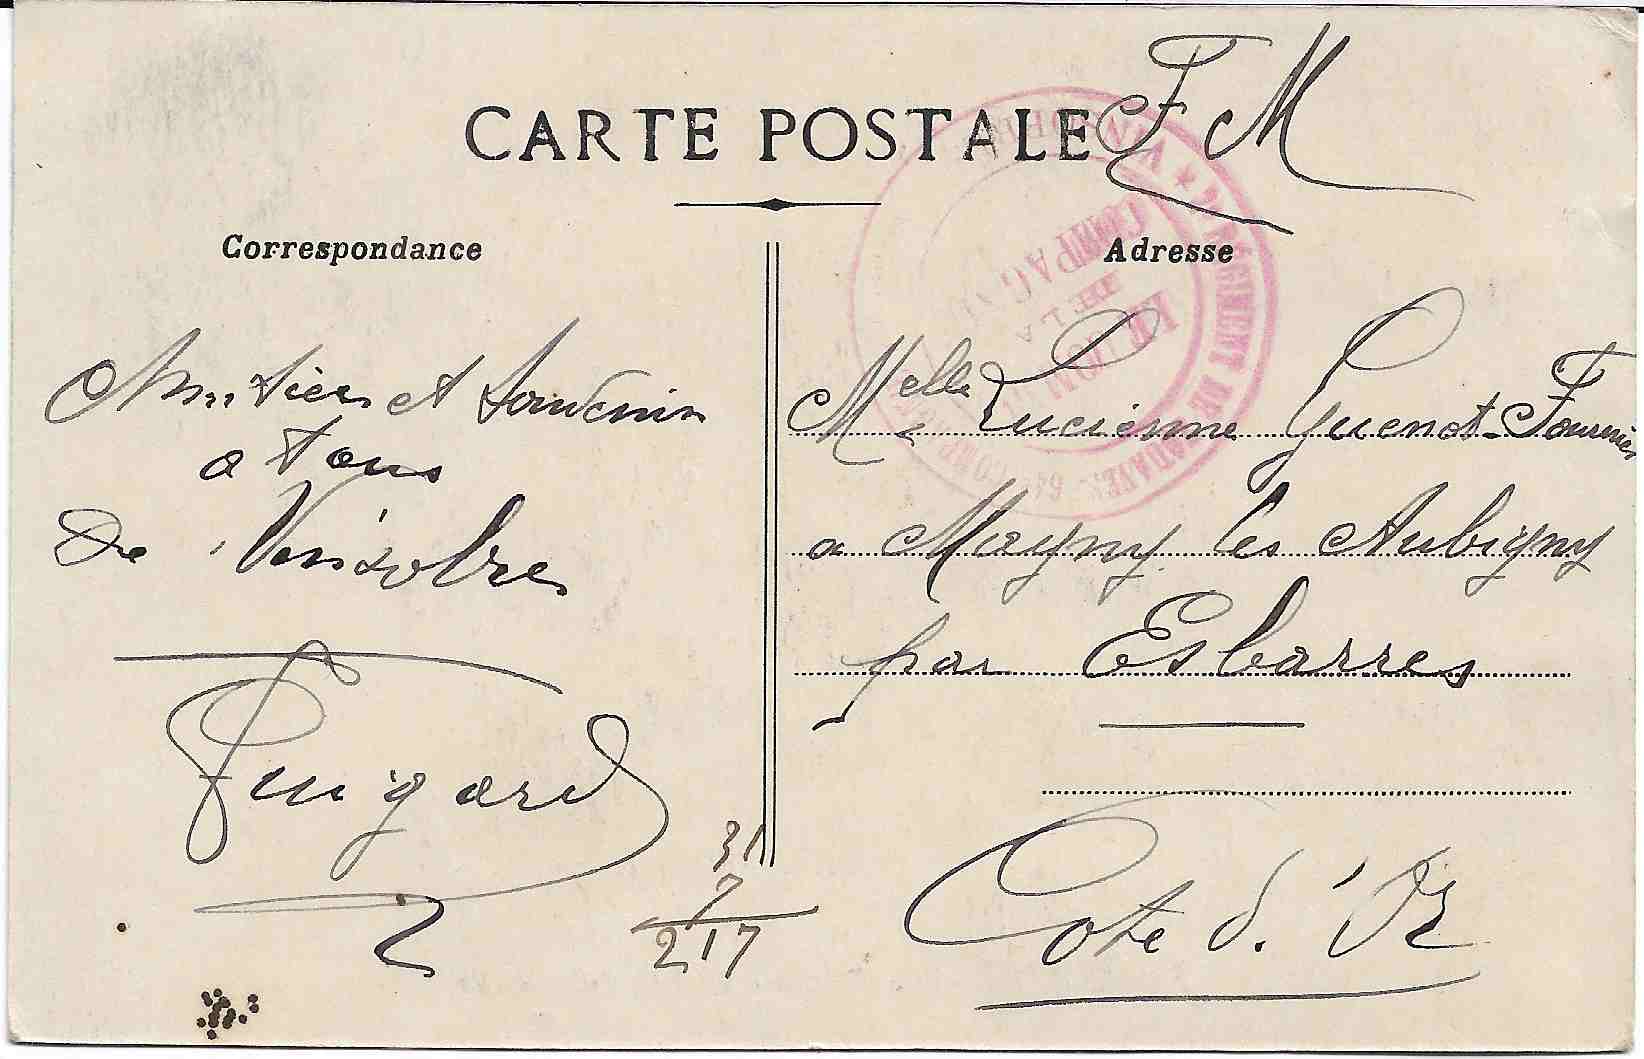 FM
CARTE POSTALE
Correspondance
Amitiés et Souvenir
a tous
De Vensolre
Fuigard
31
7
217
Adresse
Melle Lucienne Guenot-Fournier
a Magny les Aubigny
par Esbarres
Cote d'Or
RÉGIMENT DE
COMPAG
DE LA